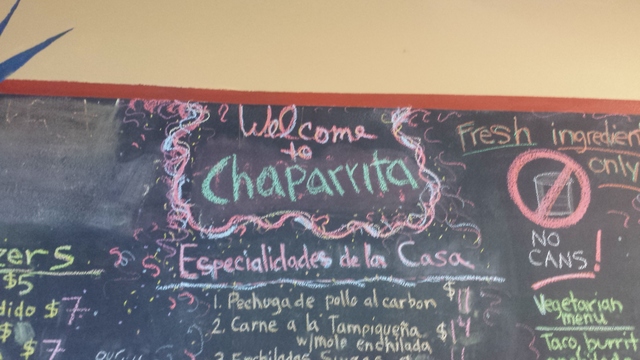 Welcome
to
Chaparrita
Especialidades de la Casa
1. Pechuga de pollo al carbon $11
2. Carne a la Tampiqueña $14
w/mole enchilada
3. Enchiladas Suizas
zers
$5
dido $7
$
$7
Fresh ingredien
only
NO
CANS!
Vegetarian
menu
Taco, burrit